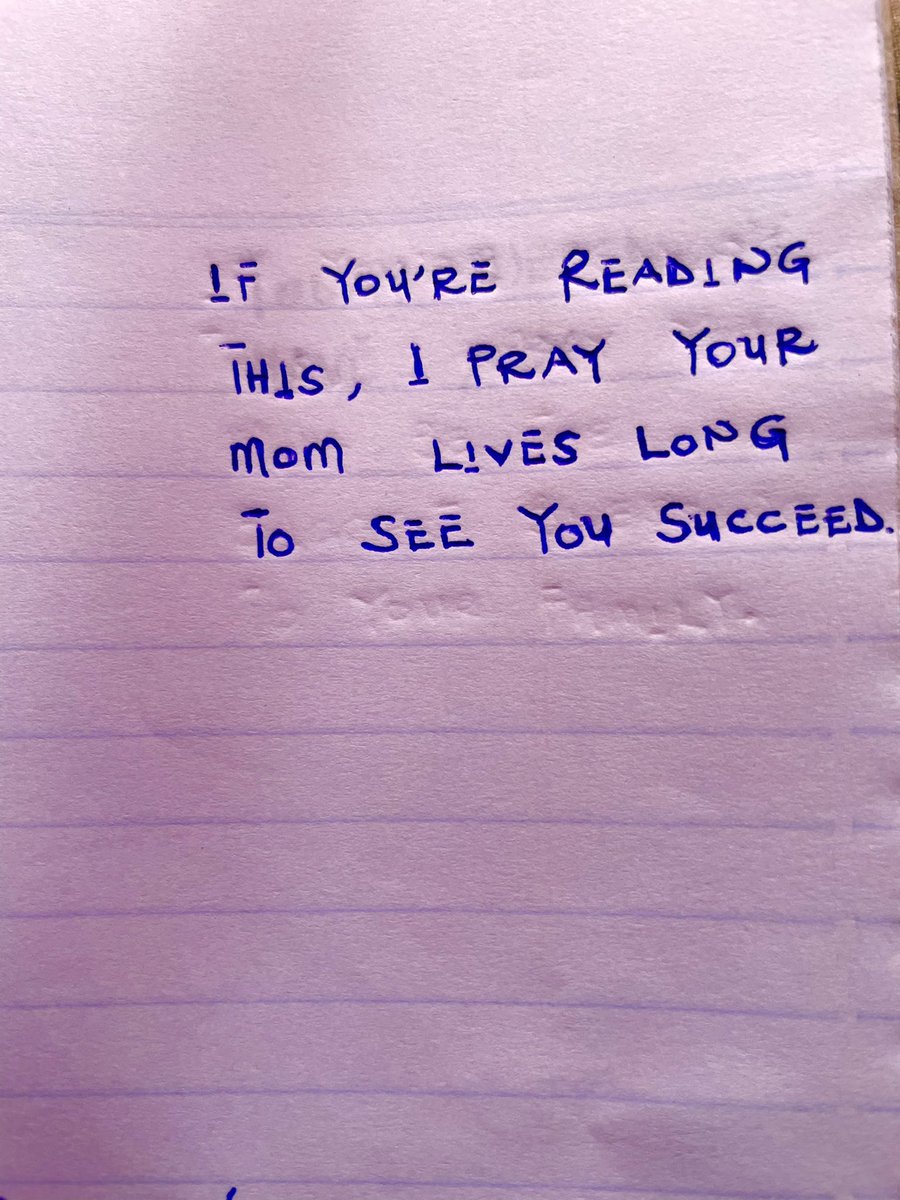 IF YOU'RE READING
THIS, I PRAY YOUR
MOM LIVES LONG
TO SEE YOU SUCCEED.
YOUR FAMILY.